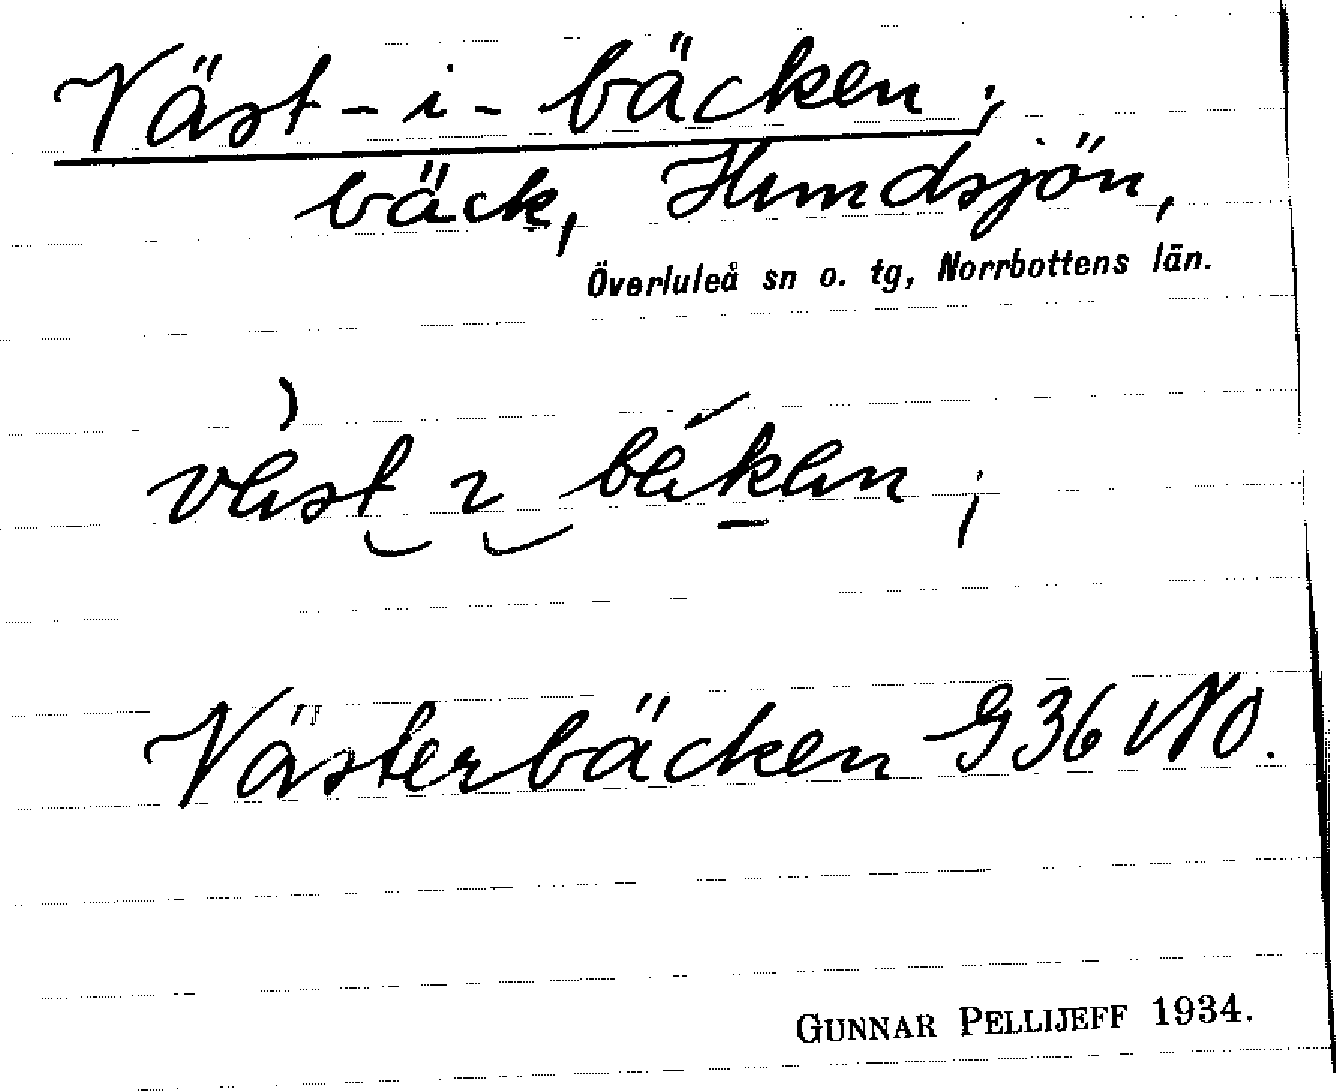 Väst-i-bäcken;
bäck, Hundsjön,
Överluleå sn o. tg, Norrbottens län.
Västerbäcken G 36 NO.
GUNNAR PELLIJEFF 1934.